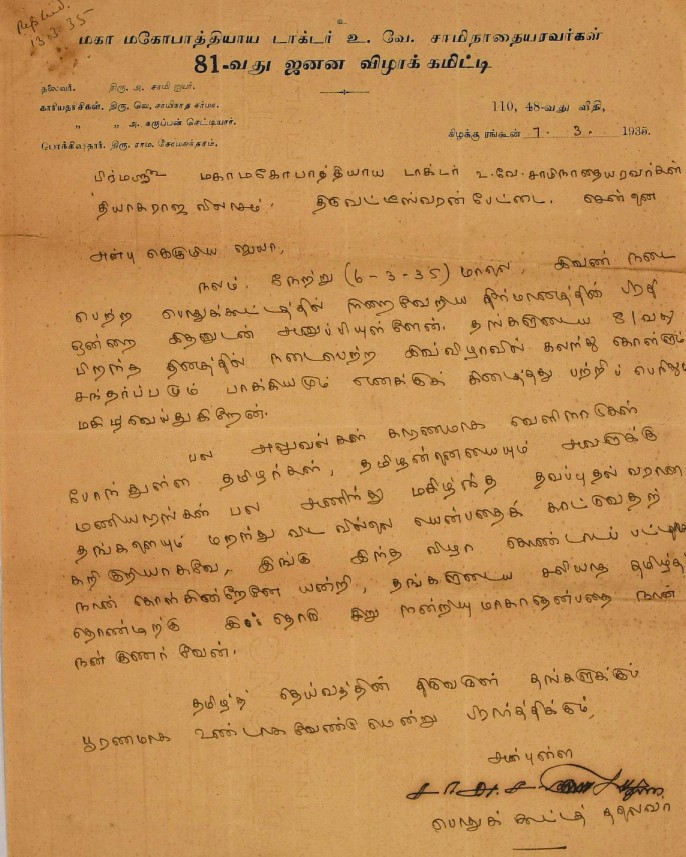 Replied.
13.3.35
உ
மகா மகோபாத்தியாய டாக்டர் உ. வே. சாமிநாதையரவர்கள்
81-வது ஜனன விழாக் கமிட்டி
தலைவர். திரு. அ. சாமி ஐயர்.
காரியதரிசிகள். திரு. வெ. சாமிநாத சர்மா.
" " அ. கருப்பன் செட்டியார்.
பொக்கிஷதார். திரு. ராம. சோமசுந்தரம்.
110, 48-வது வீதி,
கிழக்கு ரங்கூன் 7. 3. 1935.
பிரம்மஸ்ரீ மகாமகோபாத்தியாய டாக்டர் உ.வே.சாமிநாதையரவர்கள்
தியாகராஜ விலாசம். திருவட்டீஸ்வரன் பேட்டை. சென்னை
அன்பு கெழுமிய ஐயா,
நலம். நேற்று (6-3-35) மாலை, இவண் நடை
பெற்ற பொதுக்கூட்டத்தில் நிறைவேறிய தீர்மானத்தின் பிரதி
ஒன்றை இதனுடன் அனுப்பியுள்ளேன். தங்களுடைய 81வது
பிறந்த தினத்தில் நடைபெற்ற இவ்விழாவில் கலந்து கொள்ளும்
சந்தர்ப்பமும் பாக்கியமும் எனக்குக் கிடைத்தது பற்றிப் பெரிதும்
மகிழ்வெய்துகிறேன்.
பல அலுவல்கள் காரணமாக வெளிநாடுகள்
போந்துள்ள தமிழர்கள், தமிழன்னையையும் அவளுக்கு
மணியாரங்கள் பல அணிந்து மகிழ்ந்த தவப்புதல்வரான
தங்களையும் மறந்து விடவில்லை யென்பதைக் காட்டுவதற்
கறிகுறியாகவே, இங்கு இந்த விழா கொண்டாடப் பட்டதாக
நான் கொள்கின்றேனே யன்றி, தங்களுடைய சலியாத தமிழ்த்
தொண்டிற்கு இஃ தொரு நன்றியுமாகாதென்பதை நான்
நன் குணர் வேன்.
தமிழ்த் தெய்வத்தின் திருவருள் தங்களுக்குப்
பூரணமாக உண்டாகவேண்டுமென்று பிரார்த்திக்கும்,
அன்புள்ள
பொதுக் கூட்டத் தலைவர்